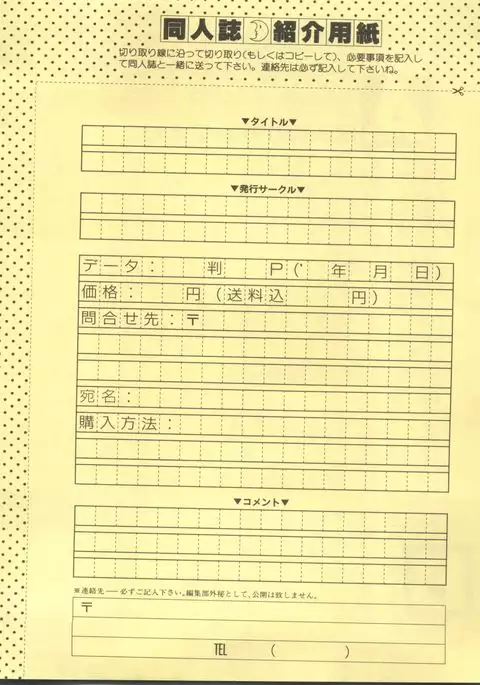 同人誌 紹介用紙
切り取り線に沿って切り取り(もしくはコピーして)、必要事項を記入し
て同人誌と一緒に送って下さい。連絡先は必ず記入して下さいね。
▼タイトル▼
▼発行サークル▼
データ: 判 P(' 年 月 日)
価格: 円(送料込 円)
問合せ先:〒
宛名:
購入方法:
▼コメント▼
※連絡先──必ずご記入下さい。編集部外秘として、公開は致しません。
〒
TEL ( )